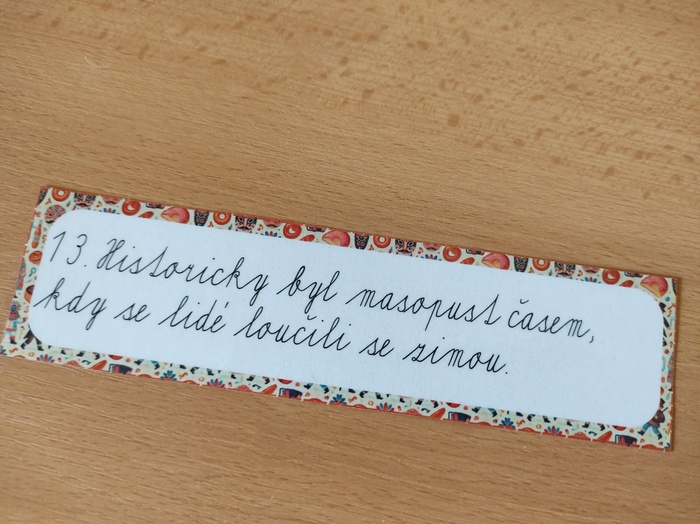 13. Historicky byl masopust časem,
kdy se lidé loučili se zimou.